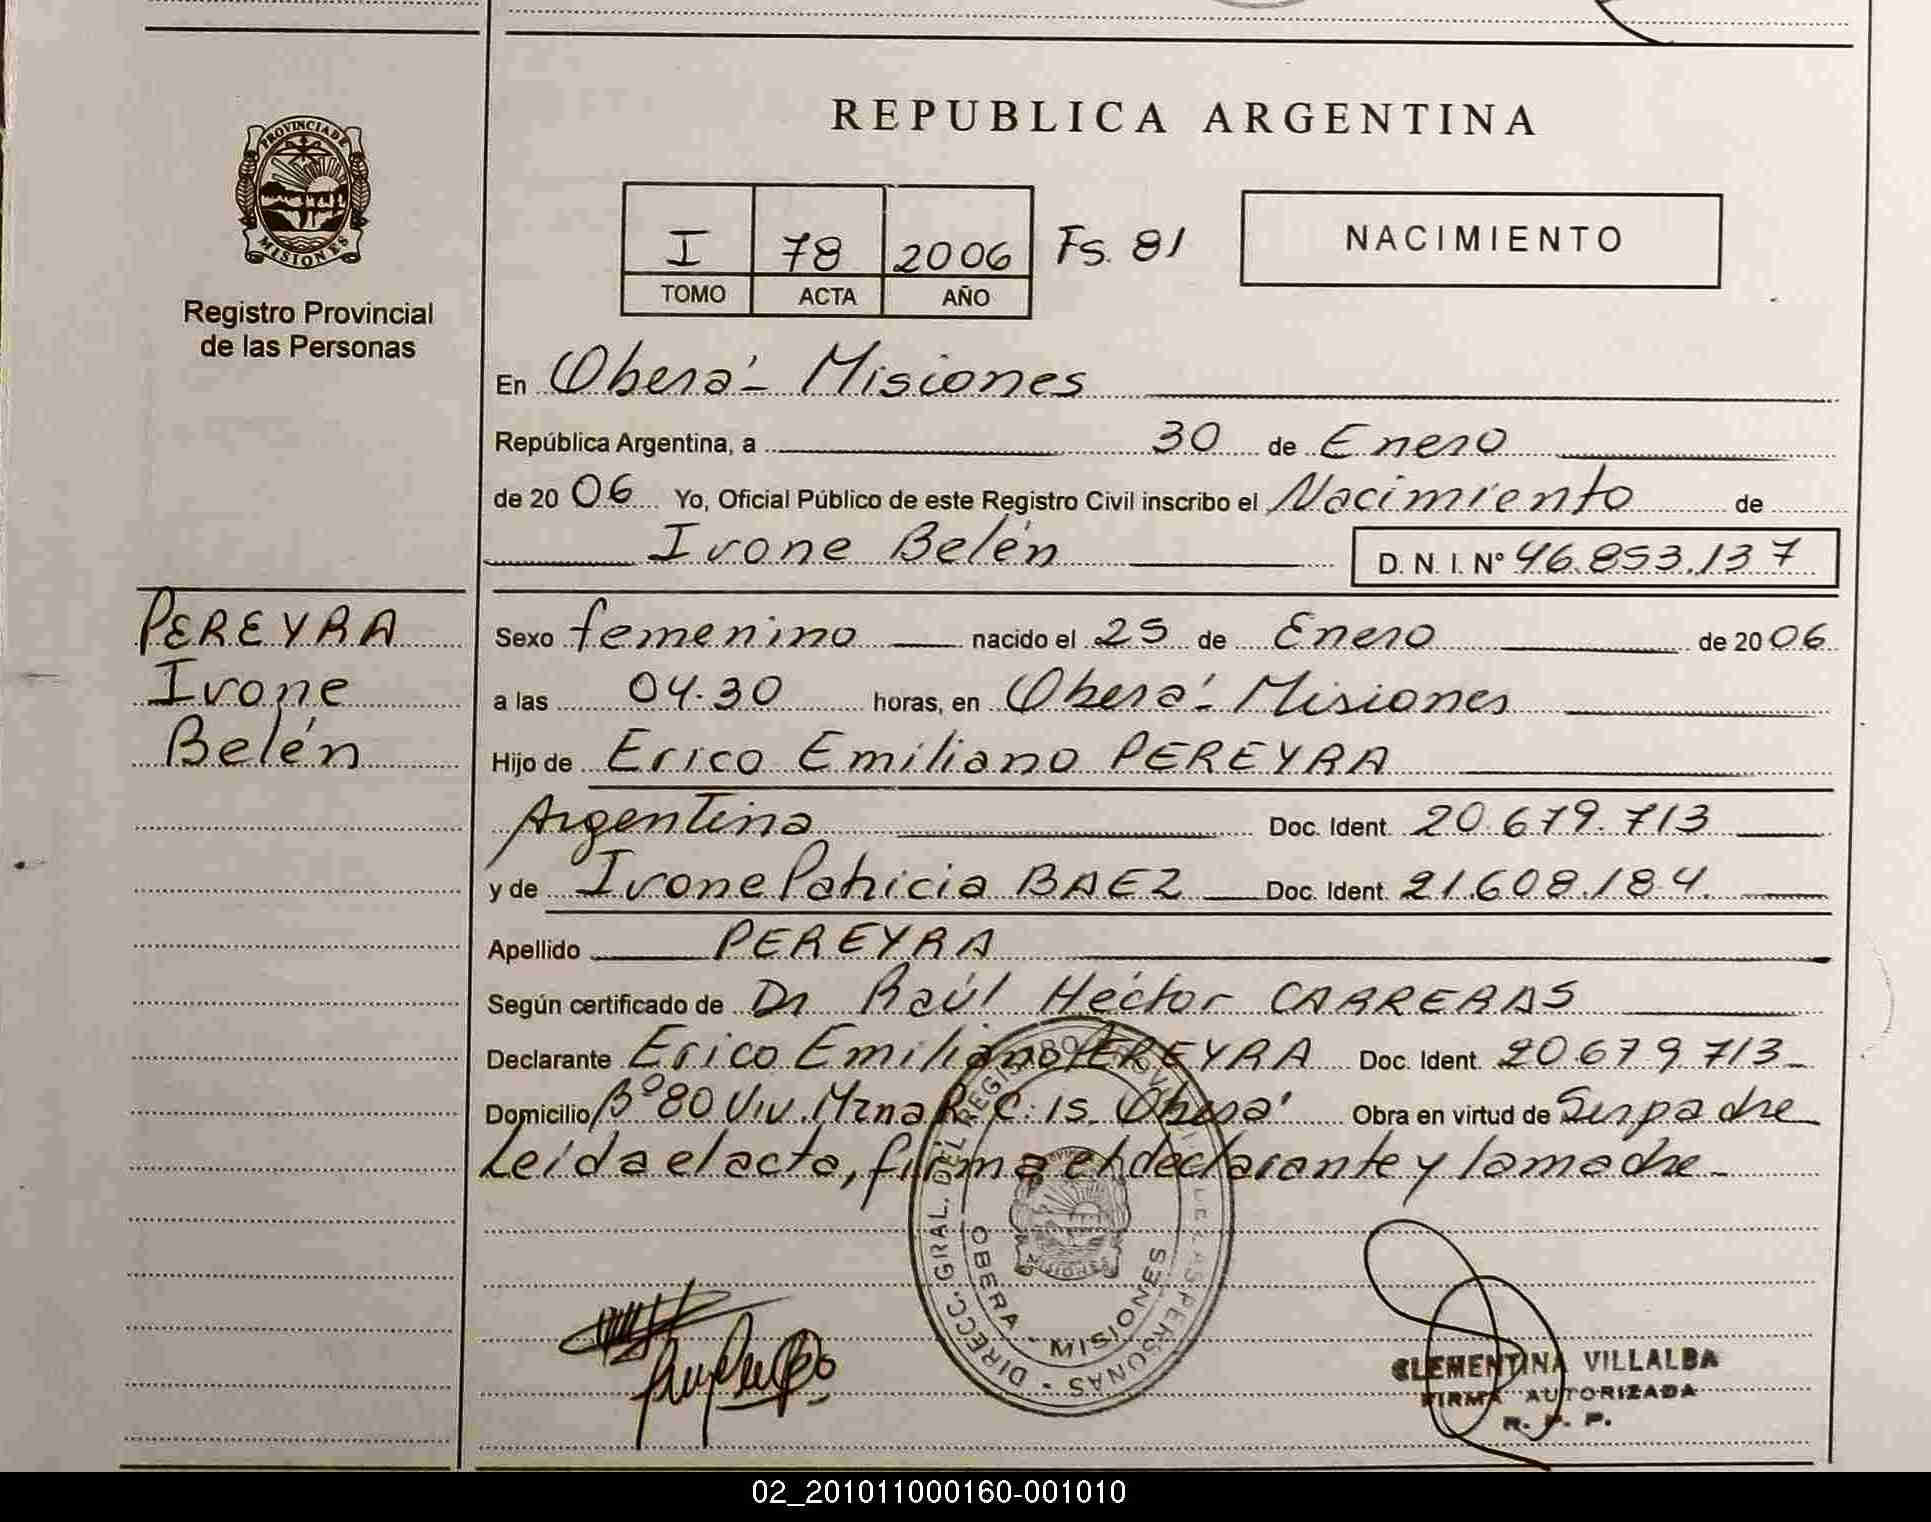 REPUBLICA ARGENTINA
PROVINCIA DE MISIONES
Registro Provincial
de las Personas
I 78 2006 Fs. 81
TOMO ACTA AÑO
NACIMIENTO
En Oberá - Misiones
República Argentina, a 30 de Enero
de 2006 Yo, Oficial Público de este Registro Civil inscribo el Nacimiento de
Ivone Belén D. N. I. Nº 46.853.137
PEREYRA
Ivone
Belén
Sexo femenino nacido el 25 de Enero de 2006
a las 04.30 horas, en Oberá - Misiones
Hijo de Erico Emiliano PEREYRA
Argentina Doc. Ident. 20.679.713
y de Ivone Patricia BAEZ Doc. Ident. 21.608.184.
Apellido PEREYRA
Según certificado de Dr Raúl Héctor CARRERAS
Declarante Erico Emiliano PEREYRA Doc. Ident. 20.679.713-
Domicilio Bº 80 Viv. Mzna R. C: 15. Oberá Obra en virtud de Ser padre
Leída el acta, firma el declarante y la madre -
DIRECC. GRAL. DEL REGISTRO PROVINCIAL DE LAS PERSONAS
OBERA - MISIONES
CLEMENTINA VILLALBA
FIRMA AUTORIZADA
R. P. P.
02_201011000160-001010